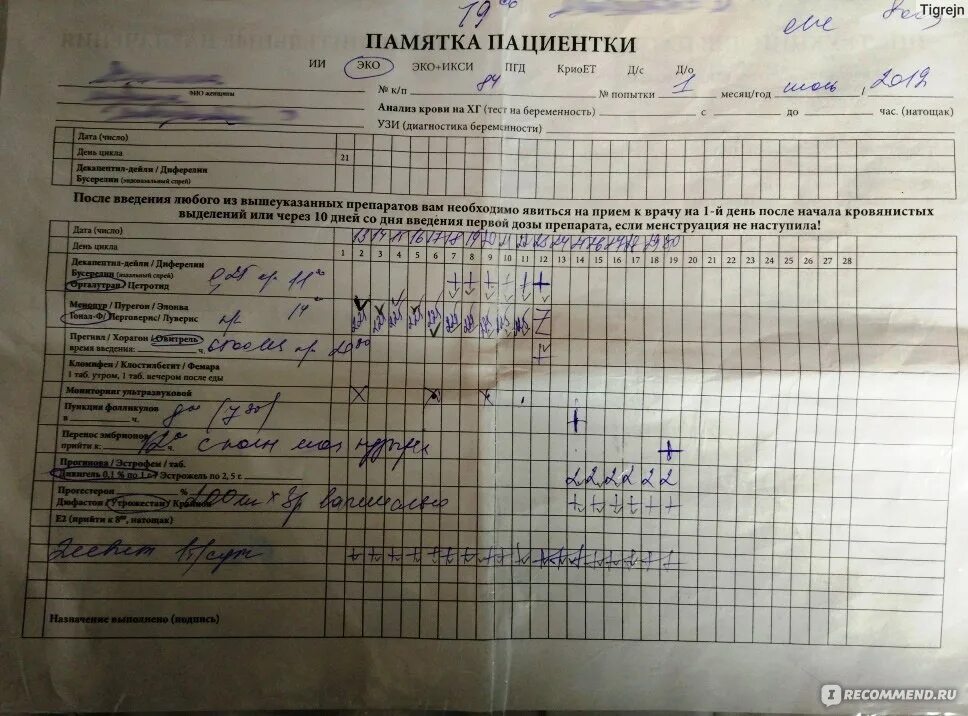 Tigrejn
19⁰⁰
ПАМЯТКА ПАЦИЕНТКИ
ИИ ЭКО ЭКО+ИКСИ ПГД КриоЕТ Д/с Д/о
ФИО женщины
№ к/п 84 № попытки 1 месяц/год июль, 2019
Анализ крови на ХГ (тест на беременность) с до час. (натощак)
УЗИ (диагностика беременности)
Дата (число)
День цикла 21
Декапептил-дейли / Диферелин
Бусерелин (эндоназальный спрей)
После введения любого из вышеуказанных препаратов вам необходимо явиться на прием к врачу на 1-й день после начала кровянистых
выделений или через 10 дней со дня введения первой дозы препарата, если менструация не наступила!
Дата (число) 13 14 15 16 17 18 19 20 21 22 23 24 25 26 27 28 29 30
День цикла 1 2 3 4 5 6 7 8 9 10 11 12 13 14 15 16 17 18 19 20 21 22 23 24 25 26 27 28
Декапептил-дейли / Диферелин
Бусерелин (назальный спрей)
Оргалутран / Цетротид 0,25 пр. 11⁰⁰ + + + + + +
Менопур / Пурегон / Элонва
Гонал-Ф / Перговерис / Луверис 19⁰⁰ 225 225 225 225 225 225 225 225 225 225
Прегнил / Хорагон / Овитрель
время введения: ч.
Кломифен / Клостилбегит / Фемара
1 таб. утром, 1 таб. вечером после еды
Мониторинг ультразвуковой X X X
Пункция фолликулов
в ч. до (7³⁰) +
Перенос эмбрионов
прийти к: ч. 12⁰⁰ с полн моч пузырем +
Прогинова / Эстрофем / таб.
Дивигель 0,1 % по 1 г / Эстрожель по 2,5 г. 2 2 2 2 2 2
Прогестерон %
Дюфастон / Утрожестан / Крайнон 200 мг × 3р вагинально + + + + + +
Е2 (прийти к 8⁰⁰, натощак)
1т/сут + + + + + + + + + + + + + + + + + +
Назначение выполнено (подпись)
IRECOMMEND.RU